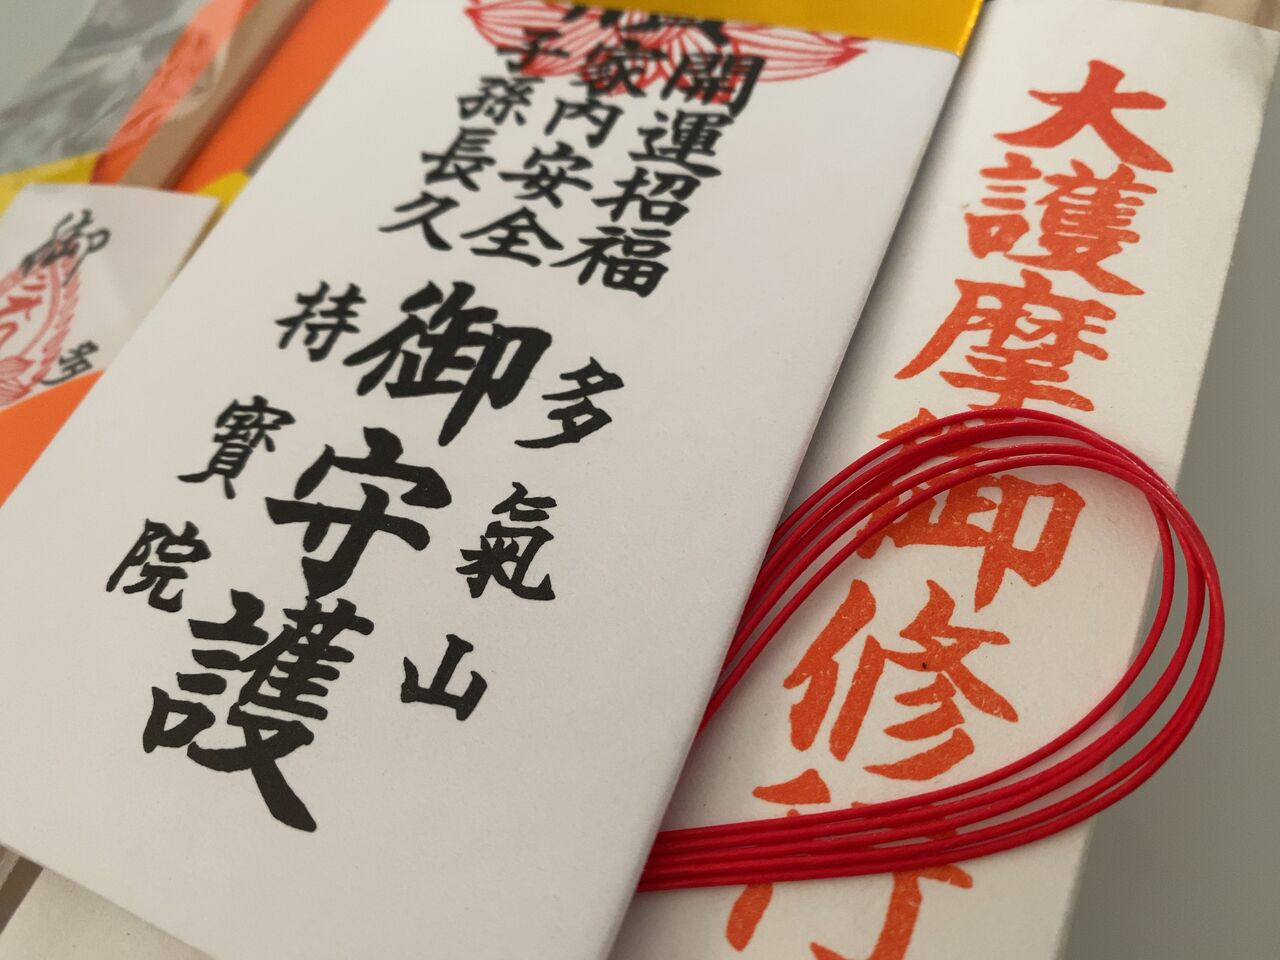 大護摩御修行
開運招福
家内安全
子孫長久
多氣山
御守護
持寳院
御
多